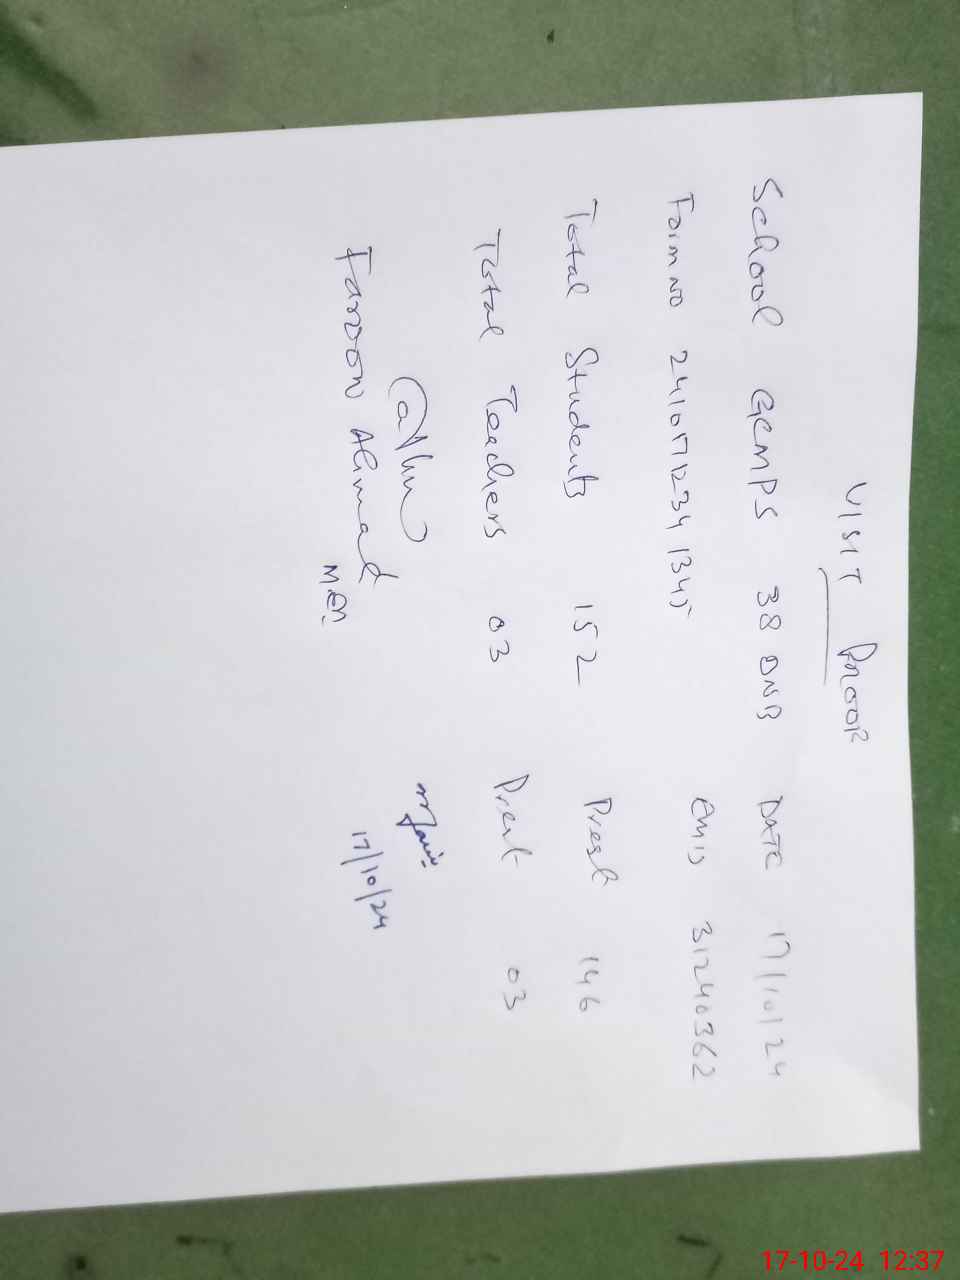 VISIT PROOF
School GCMPS 38 DNB DATE 17/10/24
Form no 24101712341345 EMIS 31240362
Total Students 152 Prest 146
Total Teachers 03 Prent 03
Farooq Ahmad 17/10/24
MEA
17-10-24 12:37